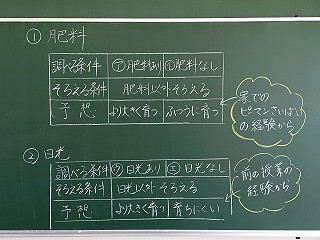 ① 肥料
調べる条件 ㋐肥料あり ㋑肥料なし
そろえる条件 肥料以外そろえる
予想 より大きく育つ ふつうに育つ
家での
ピーマンさいばい
の経験から
② 日光
調べる条件 ㋒日光あり ㋓日光なし
そろえる条件 日光以外そろえる
予想 より大きく育つ 育ちにくい
前の授業の
経験から